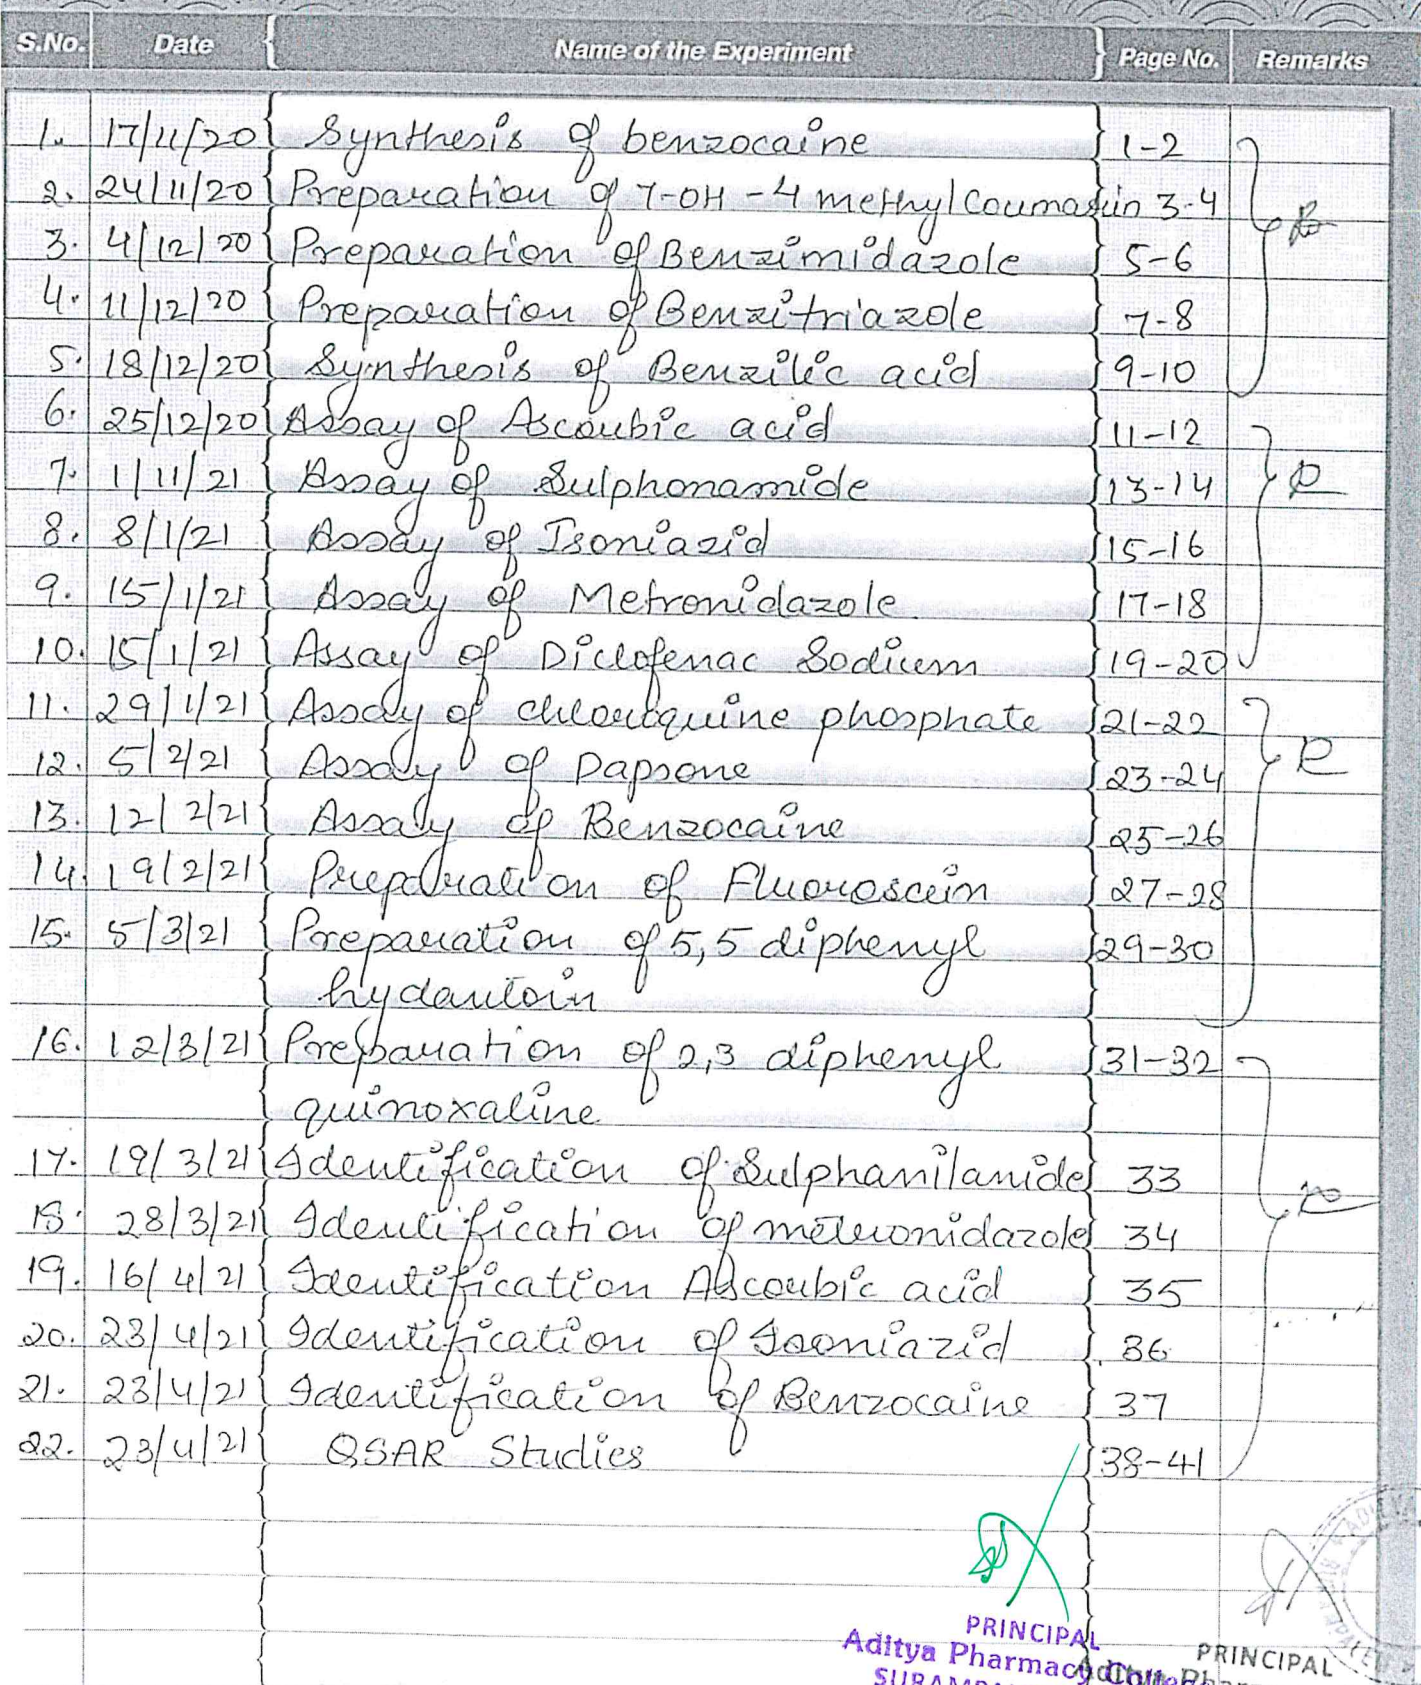 S.No. Date Name of the Experiment Page No. Remarks
1. 17/11/20 Synthesis of benzocaine 1-2
2. 24/11/20 Preparation of 7-OH-4 methyl Coumarin 3-4
3. 4/12/20 Preparation of Benzimidazole 5-6
4. 11/12/20 Preparation of Benzitriazole 7-8
5. 18/12/20 Synthesis of Benzilic acid 9-10
6. 25/12/20 Assay of Ascorbic acid 11-12
7. 1/11/21 Assay of Sulphonamide 13-14
8. 8/1/21 Assay of Isoniazid 15-16
9. 15/1/21 Assay of Metronidazole. 17-18
10. 15/1/21 Assay of Diclofenac Sodium 19-20
11. 29/1/21 Assay of chloriquine phosphate 21-22
12. 5/2/21 Assay of Dapsone 23-24
13. 12/2/21 Assay of Benzocaine 25-26
14. 19/2/21 Preparation of Fluoroscein 27-28
15. 5/3/21 Preparation of 5,5 diphenyl 29-30
hydantoin
16. 12/3/21 Preparation of 2,3 diphenyl 31-32
quinoxaline
17. 19/3/21 Identification of Sulphanilamide 33
18. 28/3/21 Identification of metronidazole 34
19. 16/4/21 Identification Ascorbic acid 35
20. 23/4/21 Identification of Isoniazid 36
21. 23/4/21 Identification of Benzocaine 37
22. 23/4/21 QSAR Studies 38-41
PRINCIPAL
Aditya Pharmacy
PRINCIPAL